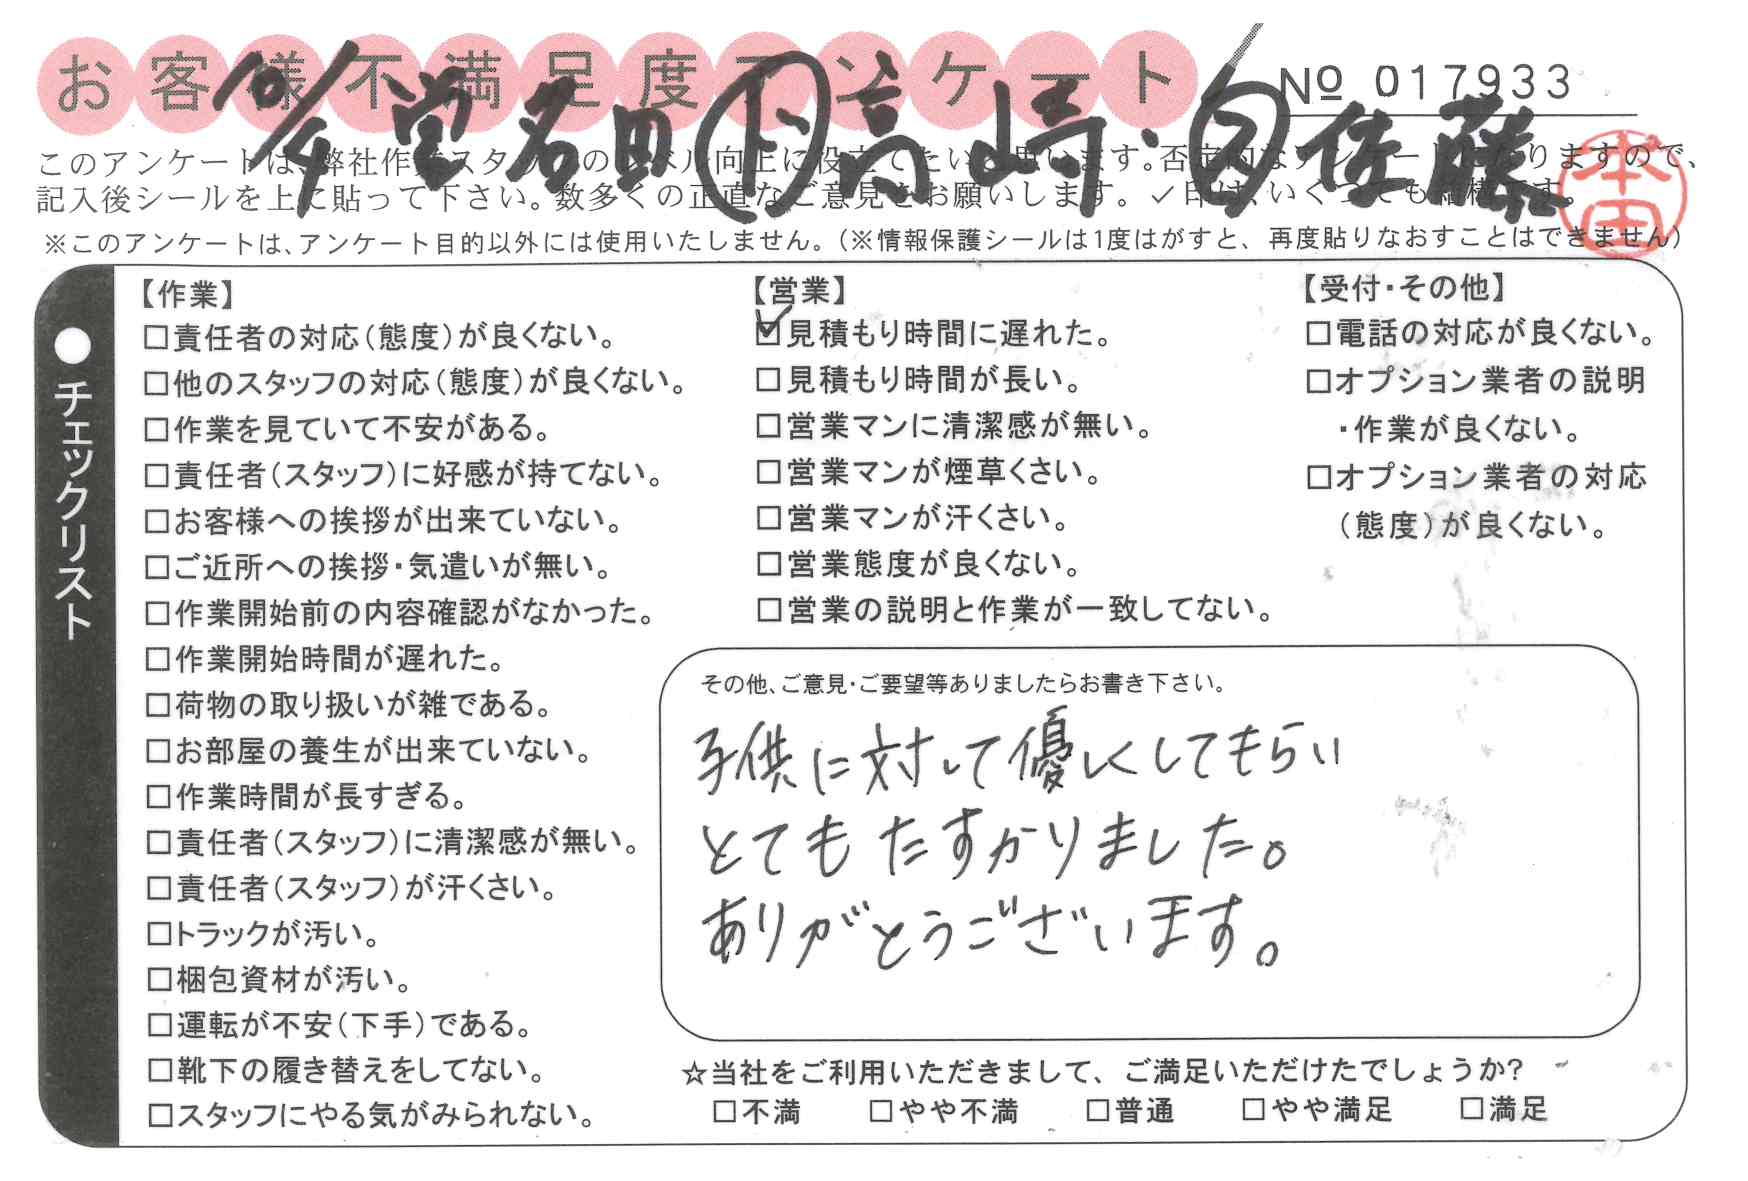 お客様不満足度アンケート
No 017933
高崎・佐藤
このアンケートは、弊社作業スタッフのレベル向上に役立てたいと思います。否定的なアンケートとなりますので、
記入後シールを上に貼って下さい。数多くの正直なご意見をお願いします。✓印は、いくつでも結構です。
本田
※このアンケートは、アンケート目的以外には使用いたしません。(※情報保護シールは1度はがすと、再度貼りなおすことはできません)
●チェックリスト
【作業】
□責任者の対応(態度)が良くない。
□他のスタッフの対応(態度)が良くない。
□作業を見ていて不安がある。
□責任者(スタッフ)に好感が持てない。
□お客様への挨拶が出来ていない。
□ご近所への挨拶・気遣いが無い。
□作業開始前の内容確認がなかった。
□作業開始時間が遅れた。
□荷物の取り扱いが雑である。
□お部屋の養生が出来ていない。
□作業時間が長すぎる。
□責任者(スタッフ)に清潔感が無い。
□責任者(スタッフ)が汗くさい。
□トラックが汚い。
□梱包資材が汚い。
□運転が不安(下手)である。
□靴下の履き替えをしてない。
□スタッフにやる気がみられない。
【営業】
☑見積もり時間に遅れた。
□見積もり時間が長い。
□営業マンに清潔感が無い。
□営業マンが煙草くさい。
□営業マンが汗くさい。
□営業態度が良くない。
□営業の説明と作業が一致してない。
【受付・その他】
□電話の対応が良くない。
□オプション業者の説明
・作業が良くない。
□オプション業者の対応
(態度)が良くない。
その他、ご意見・ご要望等ありましたらお書き下さい。
子供に対して優しくしてもらい
とてもたすかりました。
ありがとうございます。
☆当社をご利用いただきまして、ご満足いただけたでしょうか?
□不満 □やや不満 □普通 □やや満足 □満足